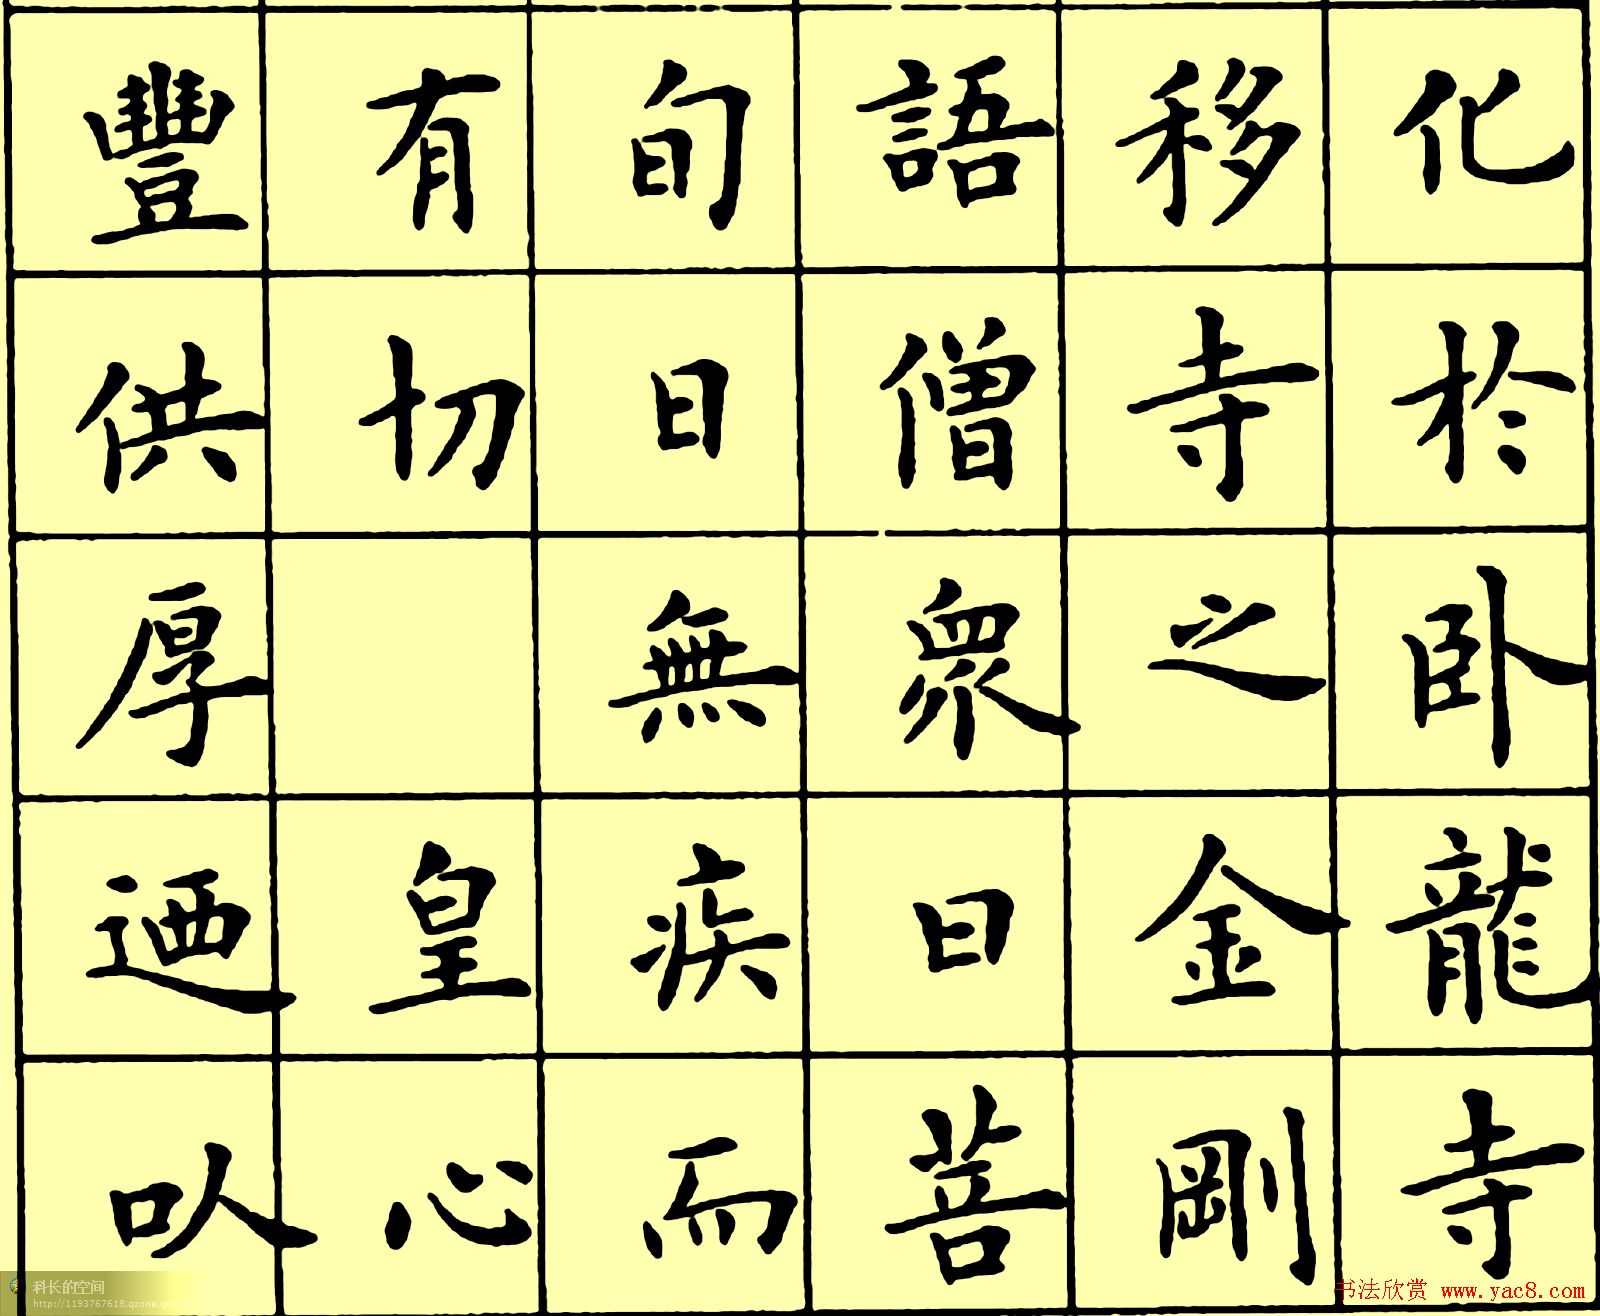 化於卧龍寺
移寺之金剛
語僧衆曰菩
旬日無疾而
有切 皇心
豐供厚迺以
科长的空间
http://1193767618.qzone.qq.com
书法欣赏 www.yac8.com